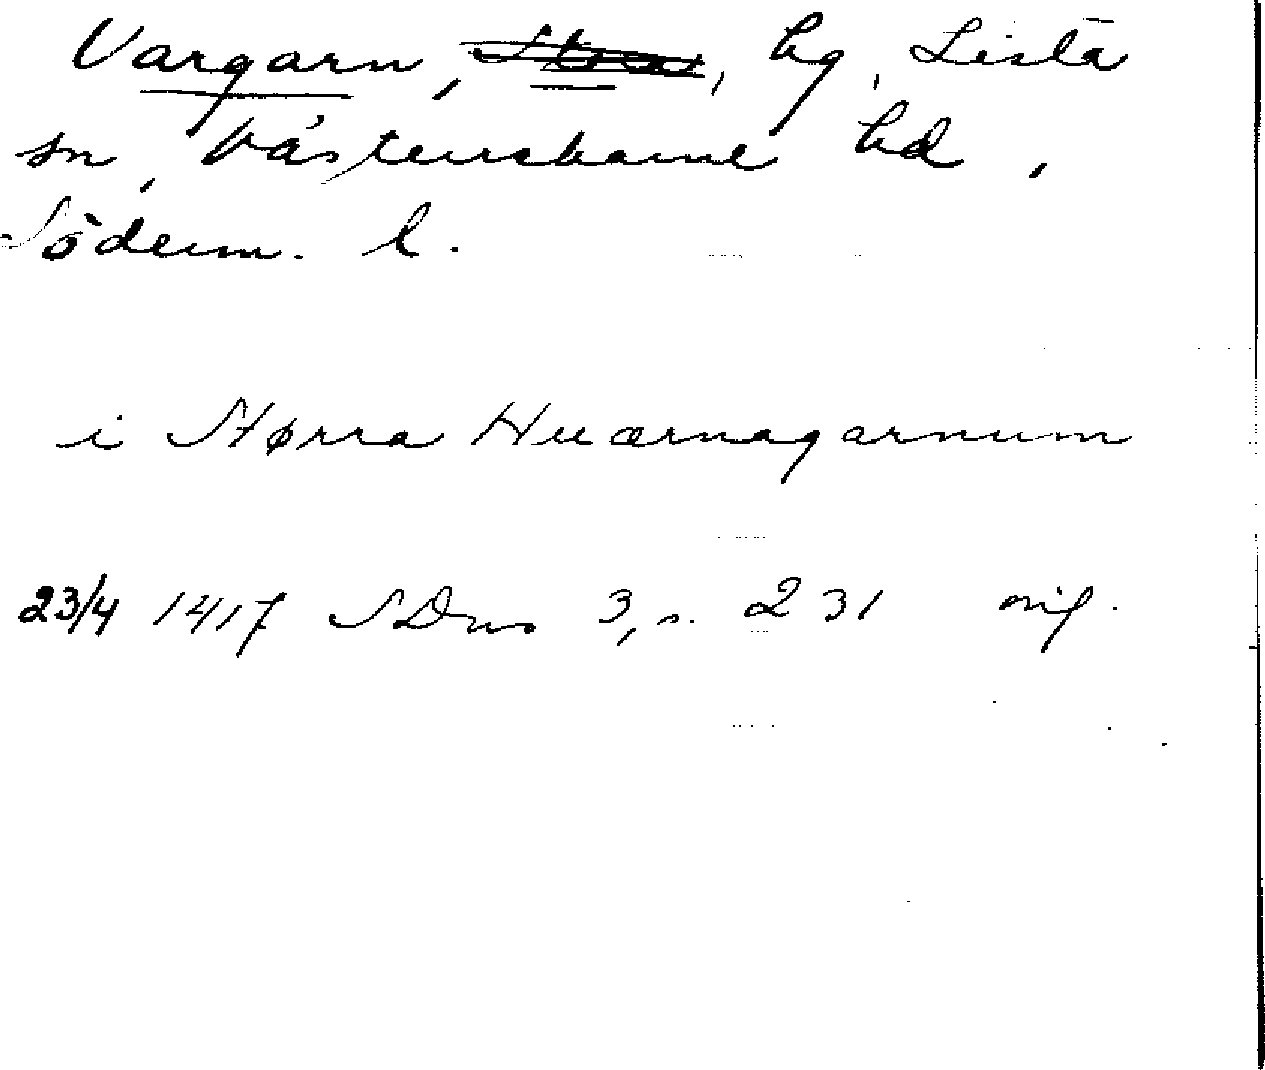 Vargarn, Stora, hg, Lista
sn, Västerrekarne hd,
Söderm. l.
i Størra Huærnagarnum
23/4 1417 SDns 3, s. 231 orig.